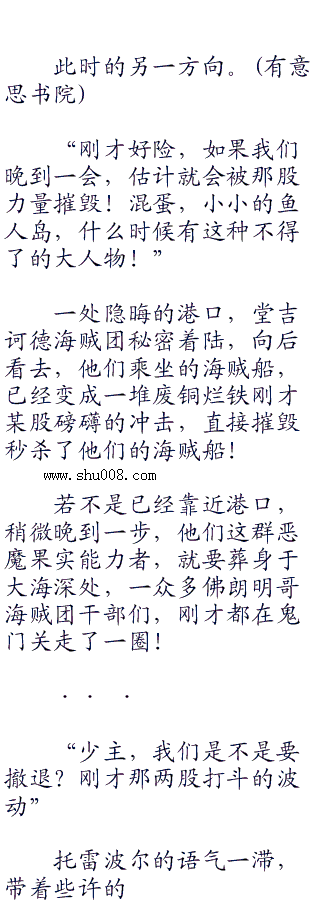 此时的另一方向。(有意
思书院)
“刚才好险，如果我们
晚到一会，估计就会被那股
力量摧毁！混蛋，小小的鱼
人岛，什么时候有这种不得
了的大人物！”
一处隐晦的港口，堂吉
诃德海贼团秘密着陆，向后
看去，他们乘坐的海贼船，
已经变成一堆废铜烂铁刚才
某股磅礴的冲击，直接摧毁
秒杀了他们的海贼船！
www.shu008.com
若不是已经靠近港口，
稍微晚到一步，他们这群恶
魔果实能力者，就要葬身于
大海深处，一众多佛朗明哥
海贼团干部们，刚才都在鬼
门关走了一圈！
． ． ．
“少主，我们是不是要
撤退？刚才那两股打斗的波
动”
托雷波尔的语气一滞，
带着些许的